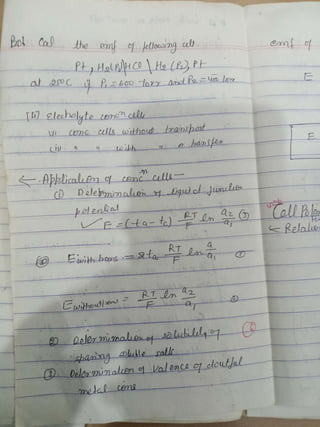 Prob Cal the emf of following cell
Pt, H2(P1)/HCl \ H2 (P2), Pt
at 25°C if P1 = 600 torr and P2 = 400 torr
[II] Electrolyte concn cells
(i) conc cells without transport
(ii) " " with " " transfer
← Application of concn cells —
(i) Determination of liquid junction
potential
✓ E = (ta - tc) RT/F ln a2/a1 (3)
E with trans = 2ta RT/F ln a/a1 ①
E without trans = RT/F ln a2/a1 ②
② Determination of solubility of
sparing soluble salts
③ Determination of valence of doubtful
metal ions
emf of
E
E
Cell Poten
← Relation